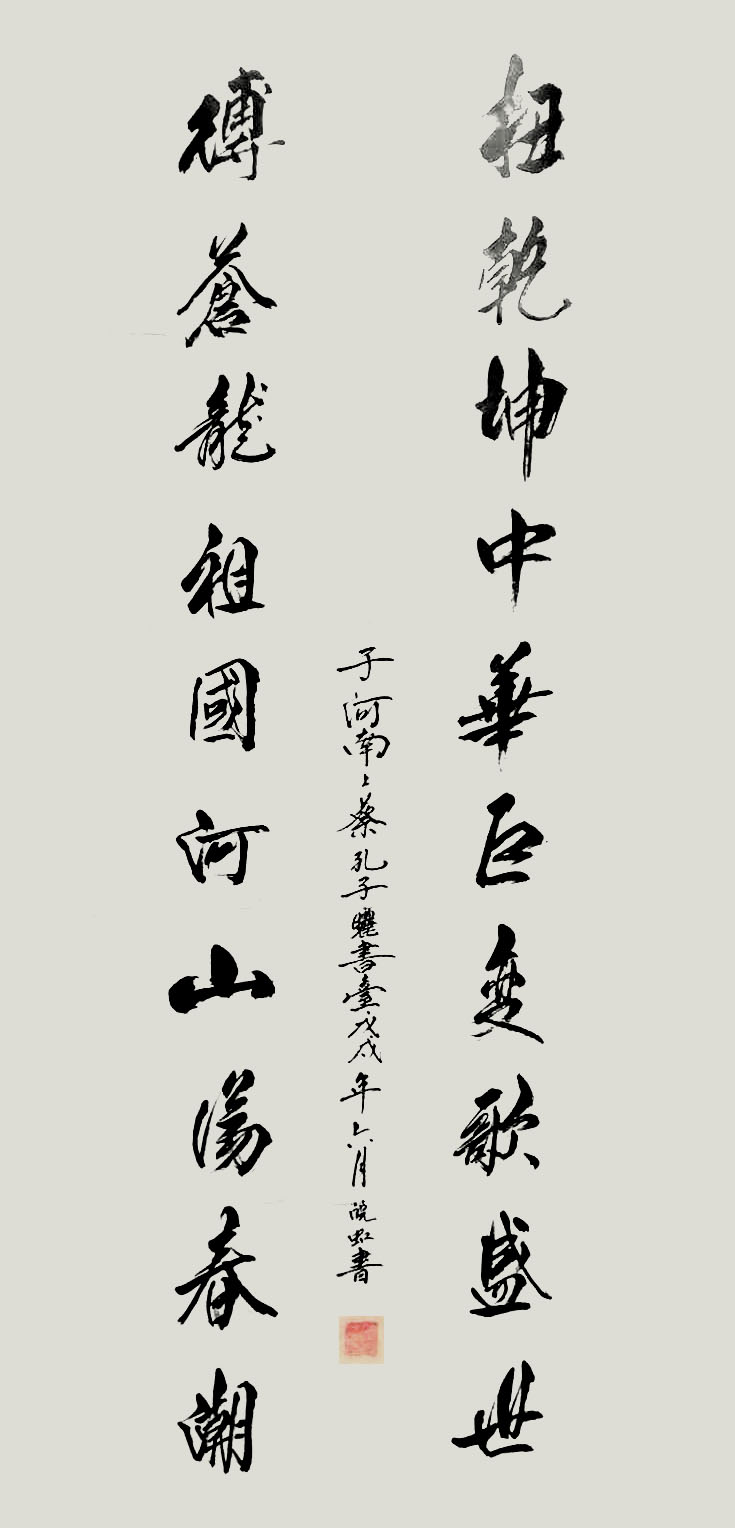 扭乾坤中華巨变歌盛世
縛蒼龍祖國河山蕩春潮
子河南上蔡孔子曬書臺戊戌年六月虹書